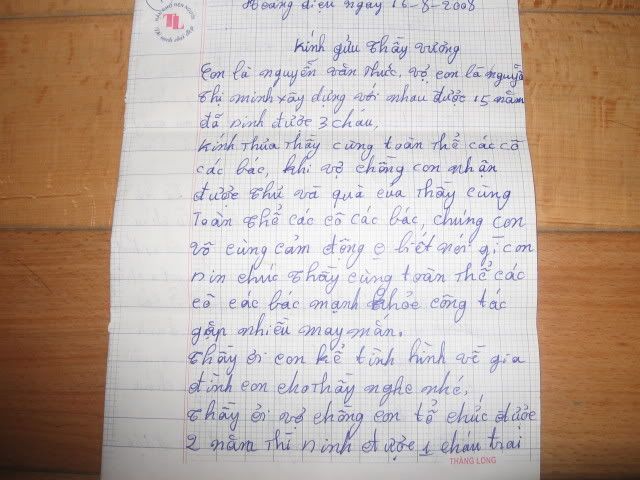 Hoàng diệu ngày 16-8-2008
TL
Kính gửu thầy vương
Con là nguyễn văn thức, vợ con là nguyễn
thị minh xây dựng với nhau được 15 năm
đã ninh được 3 cháu,
Kính thưa thầy cùng toàn thể các cô
các bác, khi vợ chồng con nhận
được thư và quà của thầy cùng
toàn thể các cô các bác, chúng con
vô cùng cảm động o biết nói gì con
nin chúc thầy cùng toàn thể các
cô các bác mạnh khỏe công tác
gặp nhiều may mắn.
thầy ơi con kể tình hình về gia
đình con cho thầy nghe nhé,
thầy ơi vợ chồng con tổ chức được
2 năm thì ninh được 1 cháu trai
THANG LONG